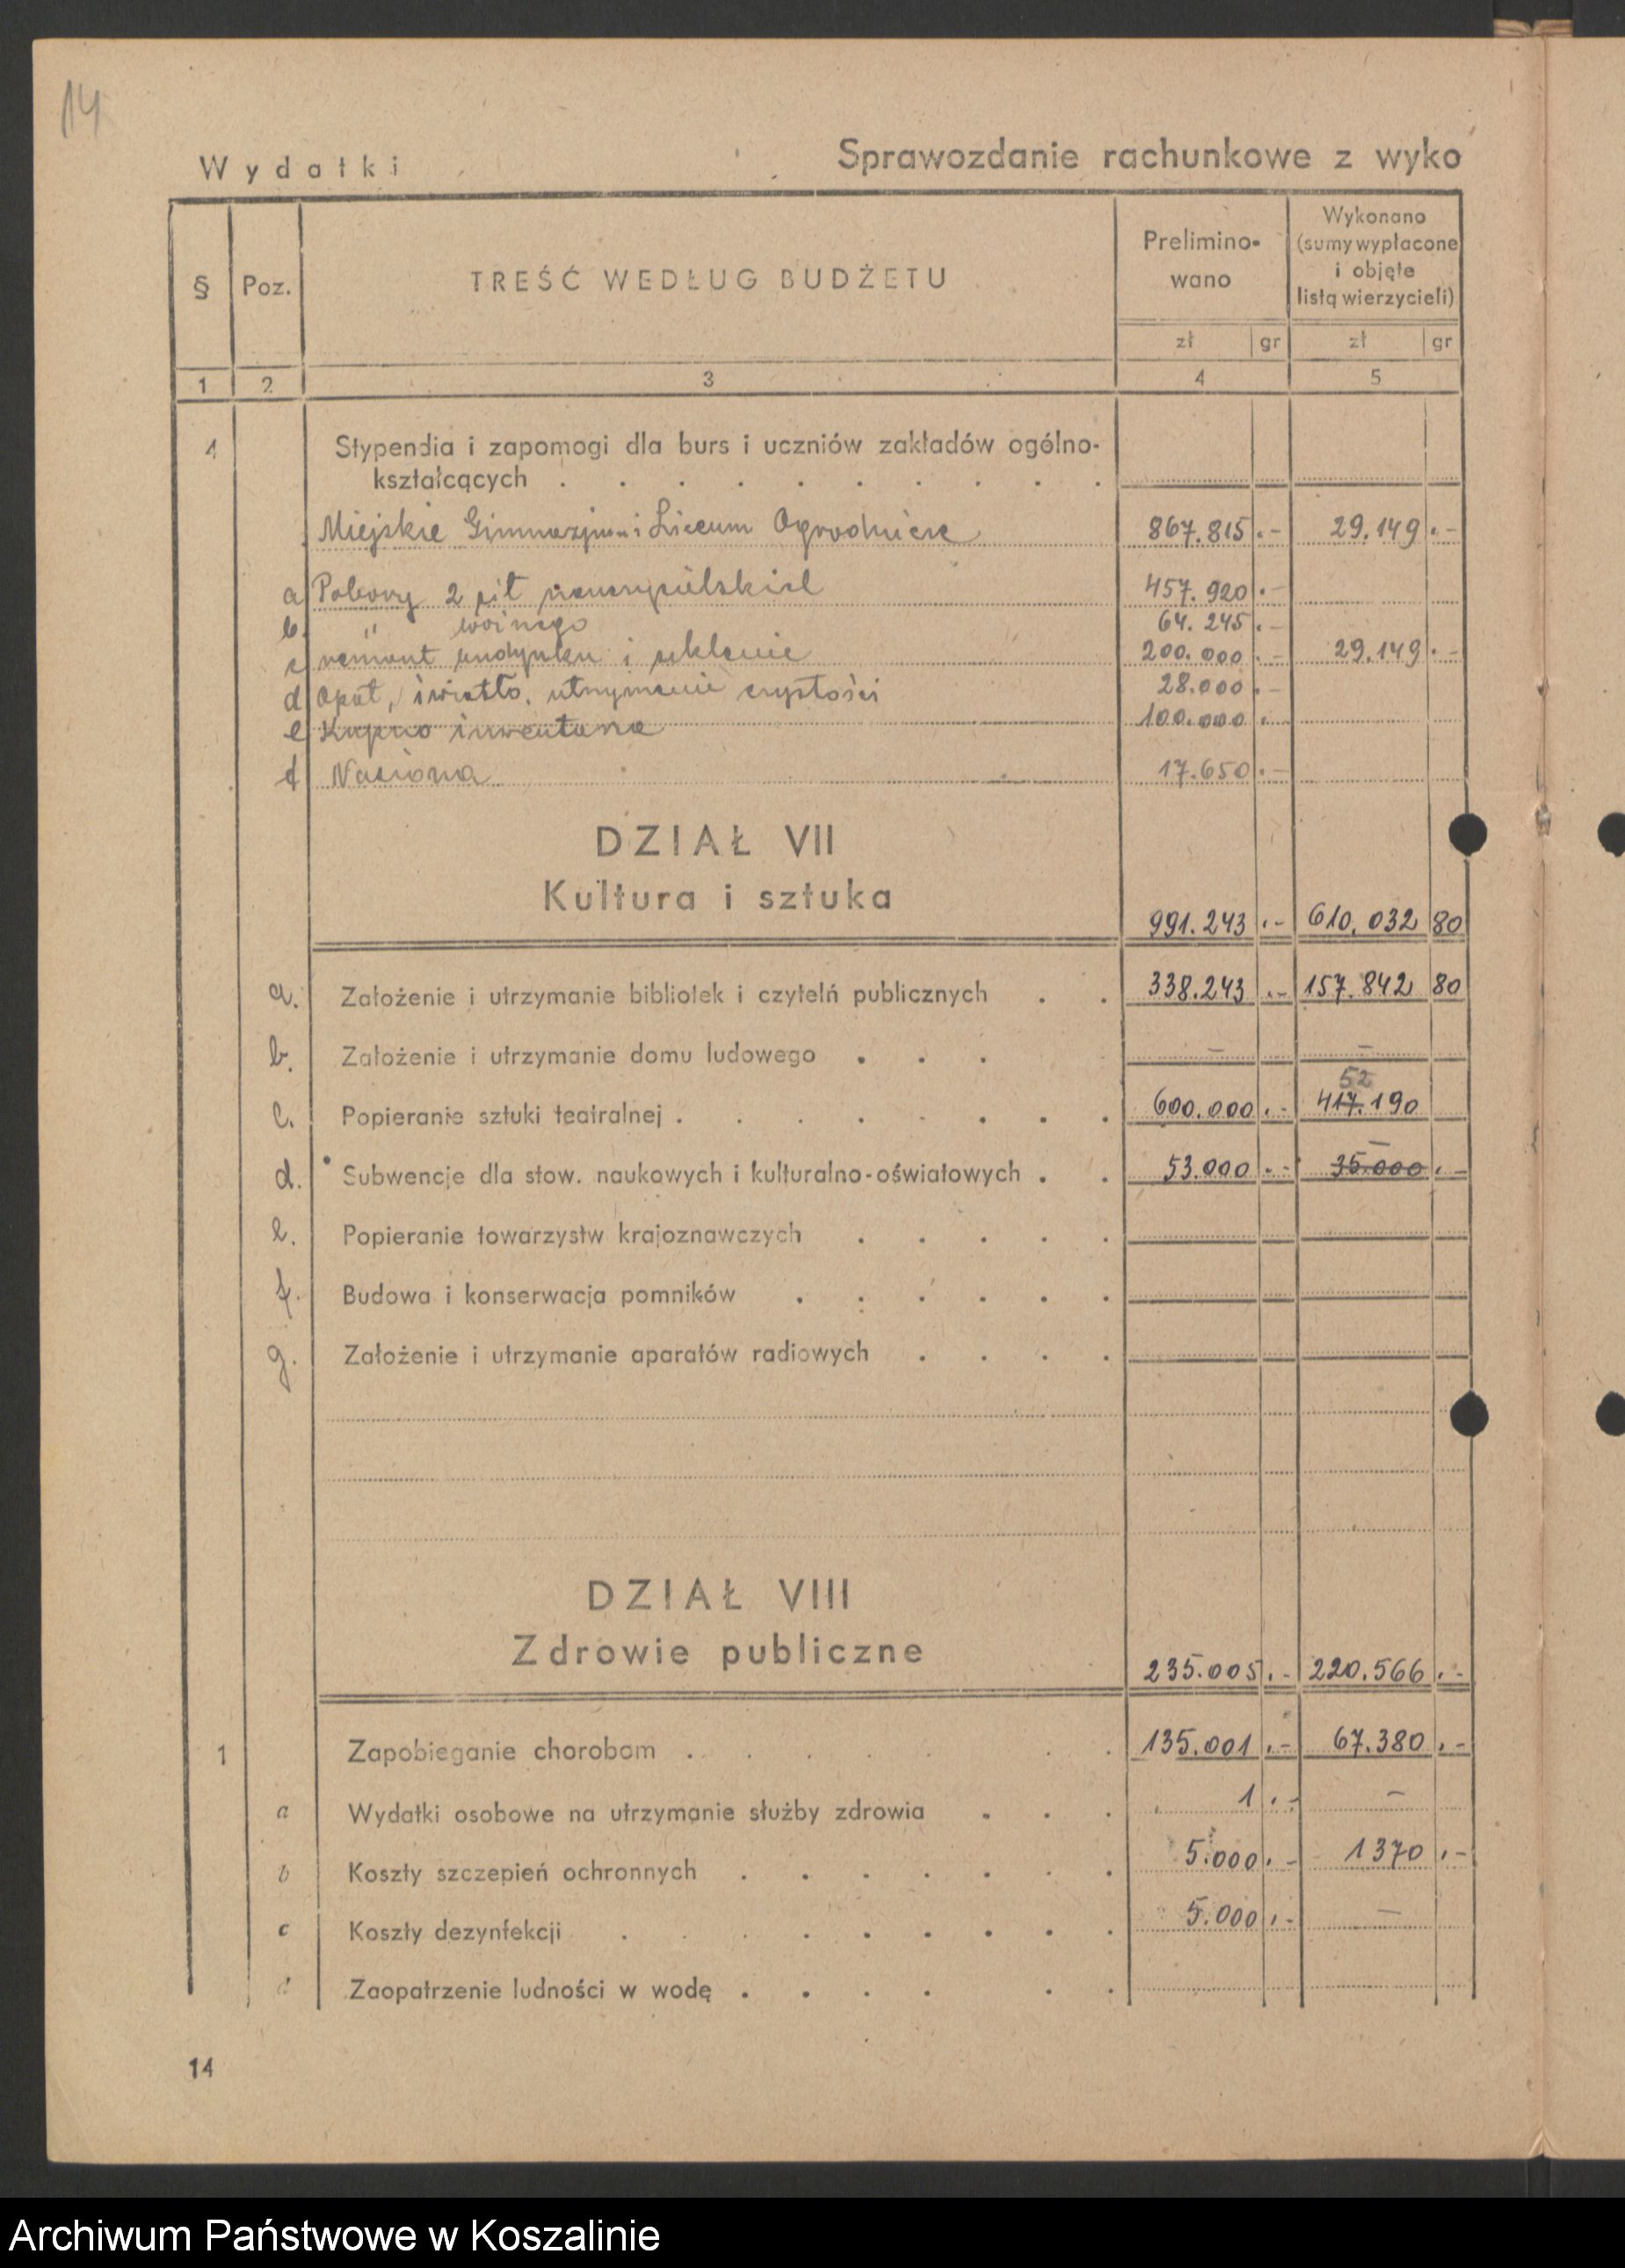 14
Wydatki
Sprawozdanie rachunkowe z wyko
§ Poz. TREŚĆ WEDŁUG BUDŻETU Prelimino-
wano
Wykonano
(sumy wypłacone
i objęte
listą wierzycieli)
zł gr zł gr
1 2 3 4 5
4 Stypendia i zapomogi dla burs i uczniów zakładów ogólno-
kształcących . . . . . . . . . .
Miejskie Gimnazjum i Liceum Ogrodnicze 867.815 .- 29.149 .-
a Pobory 2 sił nauczycielskich 457.920 .-
b. " woźnego 64.245 .-
c remont budynku i szklenie 200.000 .- 29.149 .-
d Opał, światło, utrzymanie czystości 28.000 .-
e Kupno inwentarza 100.000 .-
f Nasiona 17.650 .-
DZIAŁ VII
Kultura i sztuka
991.243 .- 610.032 80
a. Założenie i utrzymanie bibliotek i czytelń publicznych . . 338.243 .- 157.842 80
b. Założenie i utrzymanie domu ludowego . . . - -
52
c. Popieranie sztuki teatralnej . . . . . . . . 600.000 .- 417.190
d. Subwencje dla stow. naukowych i kulturalno-oświatowych . . 53.000 .- 35.000 .-
e. Popieranie towarzystw krajoznawczych . . . . .
f. Budowa i konserwacja pomników . . . . . .
g. Założenie i utrzymanie aparatów radiowych . . . .
DZIAŁ VIII
Zdrowie publiczne
235.005 .- 220.566 .-
1 Zapobieganie chorobom . . . . . . . 135.001 .- 67.380 .-
a Wydatki osobowe na utrzymanie służby zdrowia . . . 1 .- -
b Koszty szczepień ochronnych . . . . . . . 5.000 .- 1370 .-
c Koszty dezynfekcji . . . . . . . . . 5.000 .- -
d Zaopatrzenie ludności w wodę . . . . . .
14
Archiwum Państwowe w Koszalinie